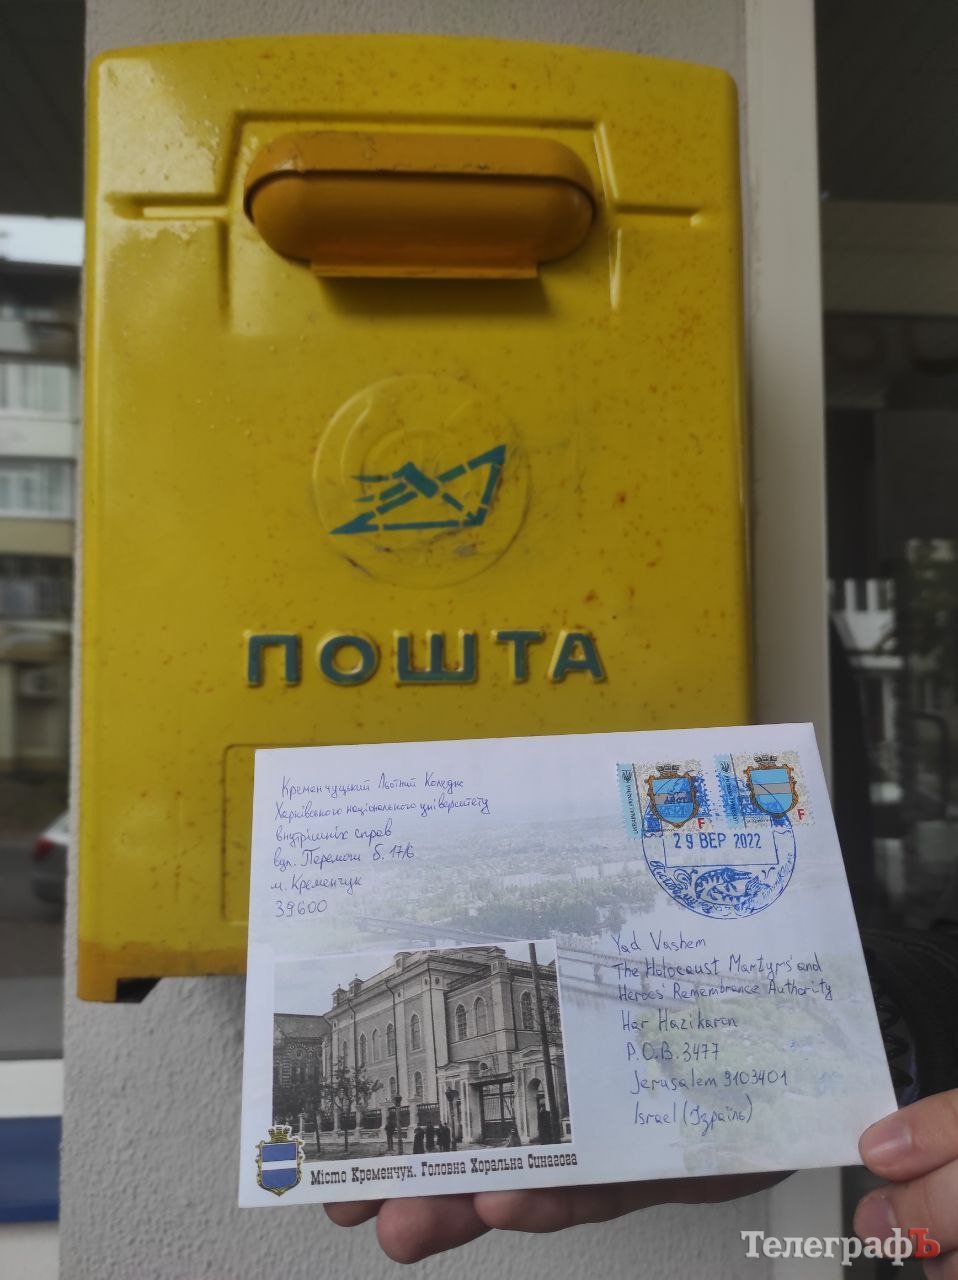 ПОШТА
Кременчуцький Льотний Коледж
Харківського національного університету
внутрішніх справ
вул. Перемоги б. 17/6
м. Кременчук
39600
F
F
29 ВЕР 2022
Yad Vashem
The Holocaust Martyrs' and
Heroes' Remembrance Authority
Har Hazikaron
P.O.B. 3477
Jerusalem 9103401
Israel (Ізраїль)
Місто Кременчук. Головна Хоральна Синагога
ТелеграфЪ